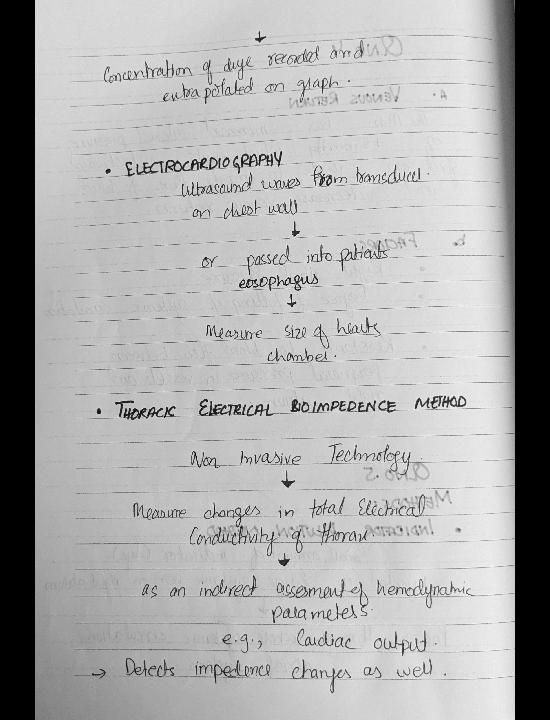 ↓
Concentration of duye recorded and
extrapolated on graph.
• ELECTROCARDIOGRAPHY
Ultrasound waves from transducer.
on chest wall
↓
or passed into patients
eosophagus
↓
Measure size of hearts
chamber.
• THORACIC ELECTRICAL BIOIMPEDENCE METHOD
Non Invasive Technology.
↓
Measure changes in total Electrical
Conductivity of thorax
↓
as an indirect assesment of hemodynamic
parameters.
e.g., Cardiac output.
→ Detects impedence changes as well.